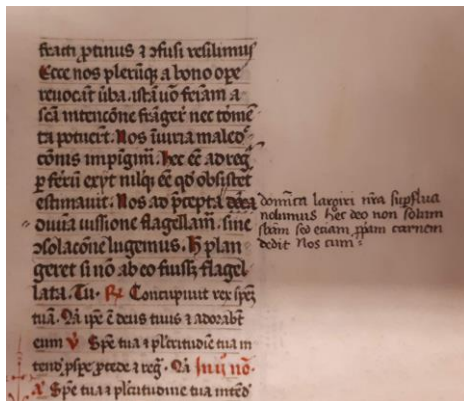 fracti ꝓtinus ⁊ ↄfusi resilimus
Ecce nos plerūq; a bono oꝑe
reuocāt ūba. istā ūo feīam a
scā intencōne frāgeꝛ nec tōmē
ta potueꝛt. Nos īiuria maledc̄
cōnis impīgim̄. Hec eē ad reg
ꝑ ferꝛū exyt nilq; eē qd̓ obsistet
estimauit. Nos ad p̄cepta
diuīa uissione flagellam̄. sine
ↄsolacōne lugemus. H̓ plan
geret si nō ab eo fuiss; flagel
lata. Tu. ℟ Concupiuit rex spez
tuā. Q̄a ip̄e ē deus tuus ⁊ adorabt̄
eum ℣ Spē tua ⁊ pl̄critudīe tua in
tend̓ ꝓspe ꝓcede ⁊ reg̓. Q̄a In iij nō.
a̓ Spē tua ⁊ pl̄critudine tua intēd̓
domīca largiri nr̄a suꝑflua
nolumus hec deo non solum
istam sed eciam ꝓpam carnem
dedit Nos cum